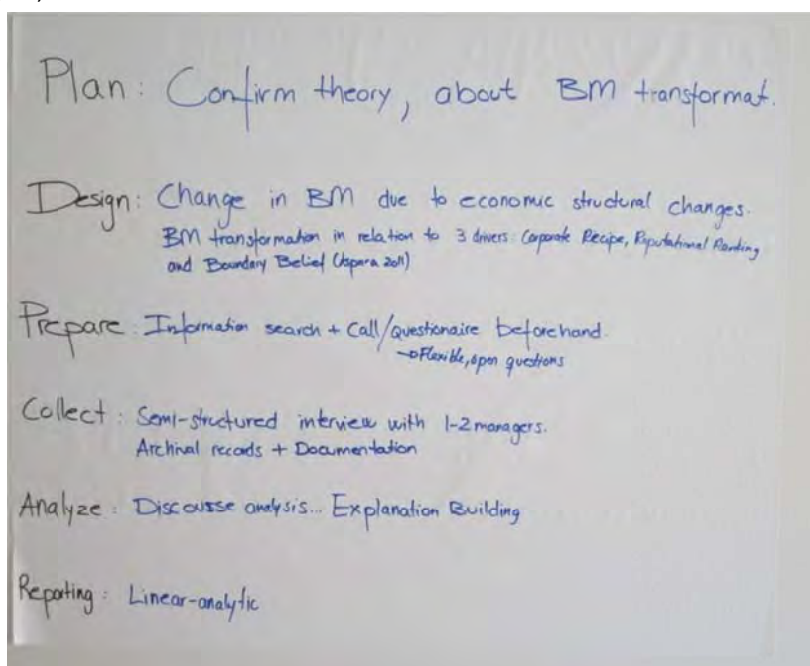 Plan: Confirm theory, about BM transformat.
Design: Change in BM due to economic structural changes.
BM transformation in relation to 3 drivers: Corporate Recipe, Reputational Ranking
and Boundary Belief (Aspara 2011)
Prepare: Information search + Call/questionaire beforehand.
→Flexible, open questions
Collect: Semi-structured interview with 1-2 managers.
Archival records + Documentation
Analyze: Discourse analysis... Explanation Building
Reporting: Linear-analytic